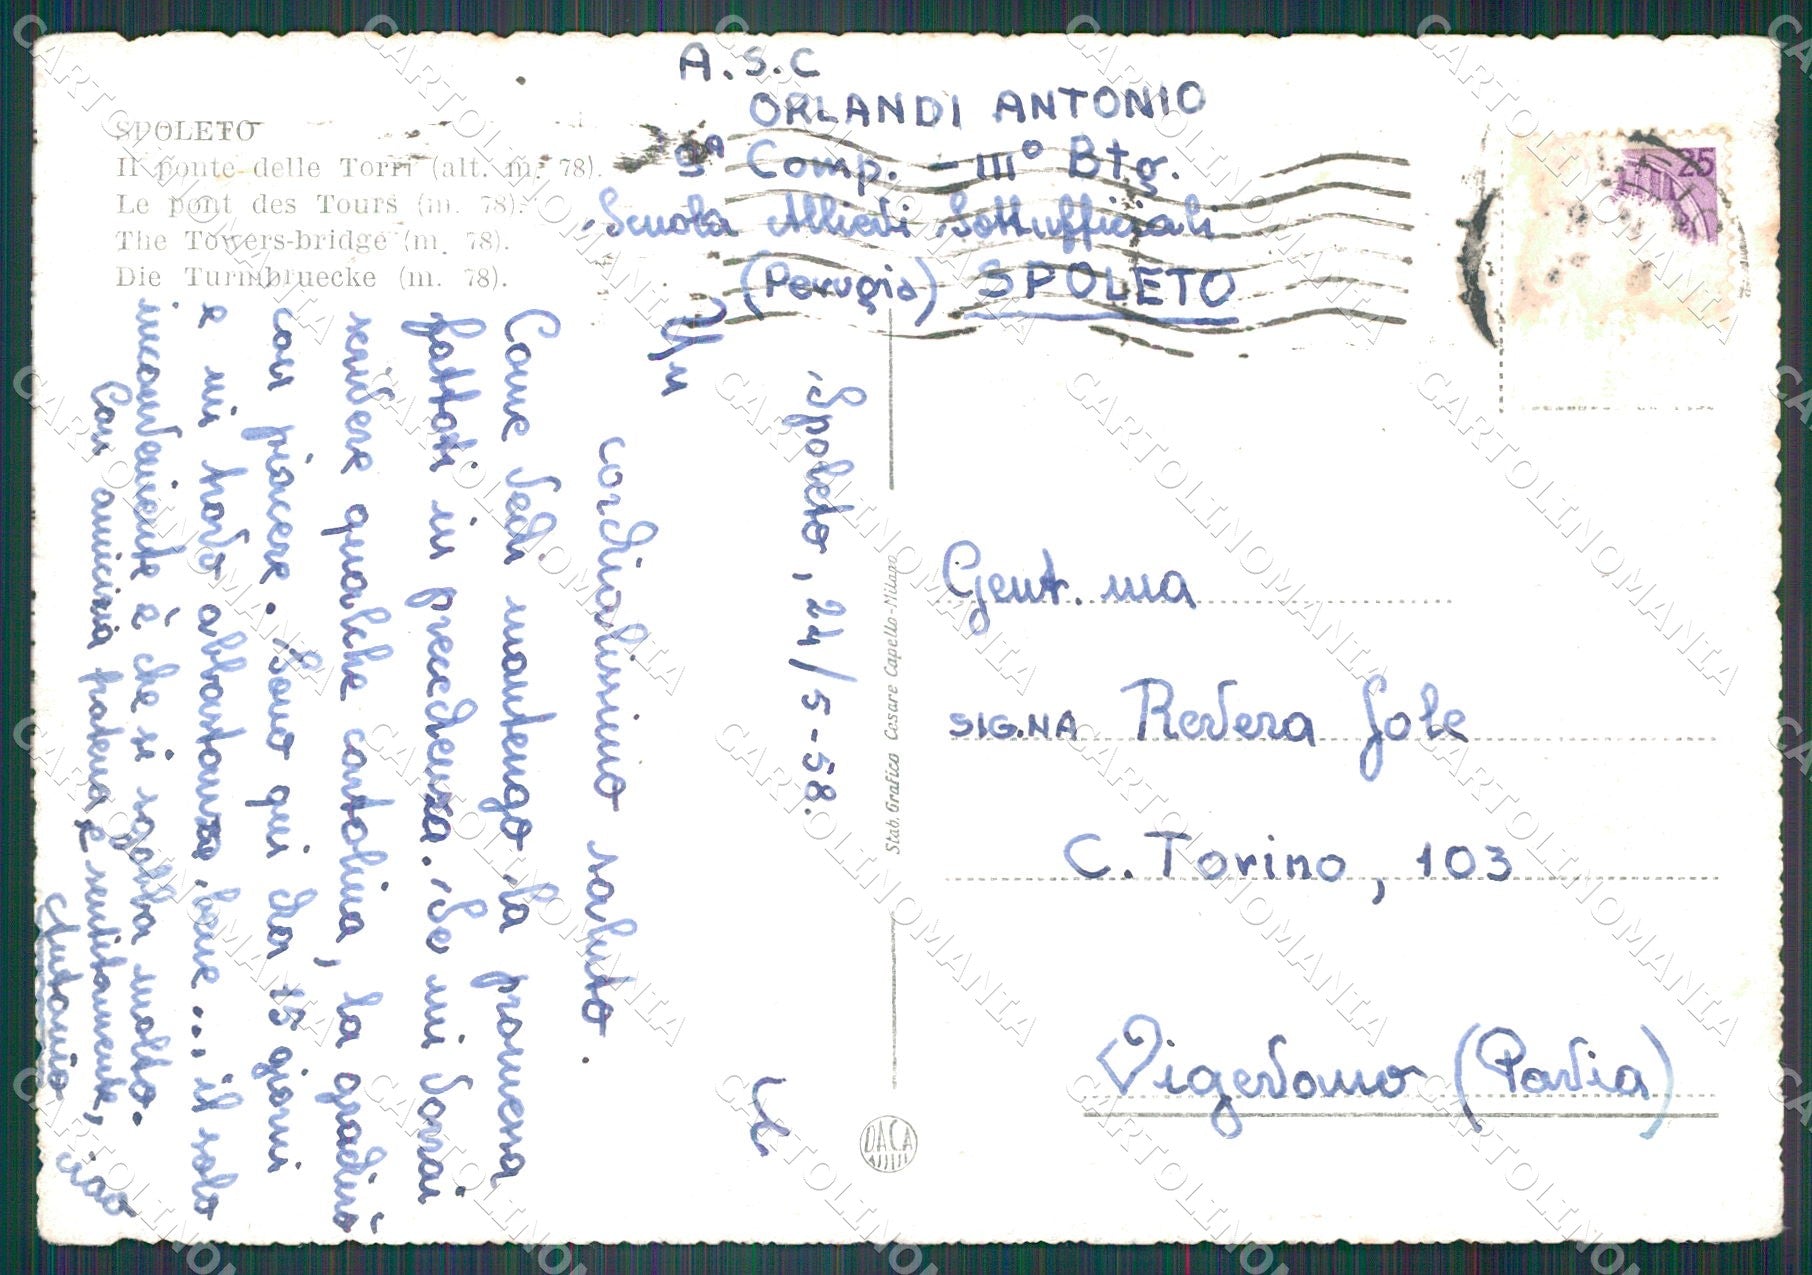 SPOLETO
Il ponte delle Torri (alt. m. 78).
Le pont des Tours (m. 78).
The Towers-bridge (m. 78).
Die Turmbruecke (m. 78).
A.S.C
ORLANDI ANTONIO
9ª Comp. - III° Btg.
Scuola Allievi Sottufficiali
(Perugia) SPOLETO
Spoleto, 24/5-58.
Un
cordialissimo saluto.
Come vedi mantengo la promessa
fattati in precedenza. Se mi vorrai
scrivere qualche cartolina, la gradirò
con piacere. Sono qui da 15 giorni
e mi trovo abbastanza bene... il solo
inconveniente è che si sgobba molto.
Con amicizia fraterna e sentitamente,
ciao
Antonio
25
Stab. Grafico Cesare Capello - Milano
DACA
Gent.ma
SIG.NA Revera Jole
C. Torino, 103
Vigevano (Pavia)
CARTOLINOMANIA